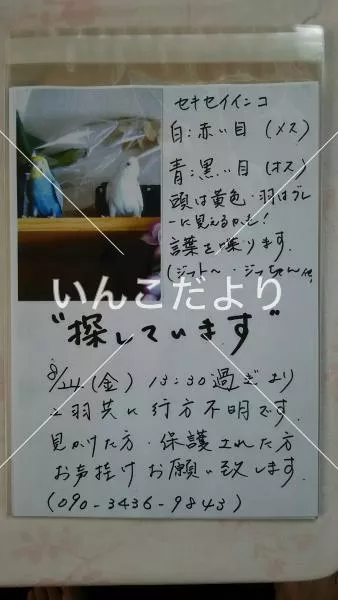 セキセイインコ
白:赤い目 (メス)
青:黒い目 (オス)
頭は黄色・羽はブル
ーに見えるかも!
言葉を喋ります。
いんこだより
"探しています"
8/24.(金) 13:30過ぎより
二羽共に行方不明です.
見かけた方・保護された方
お声掛けお願い致します.
(090-3436-9843)